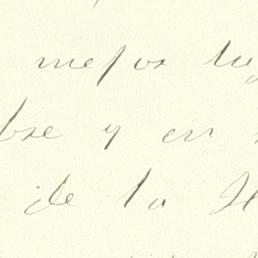 mejor lu
bre y en
de la H